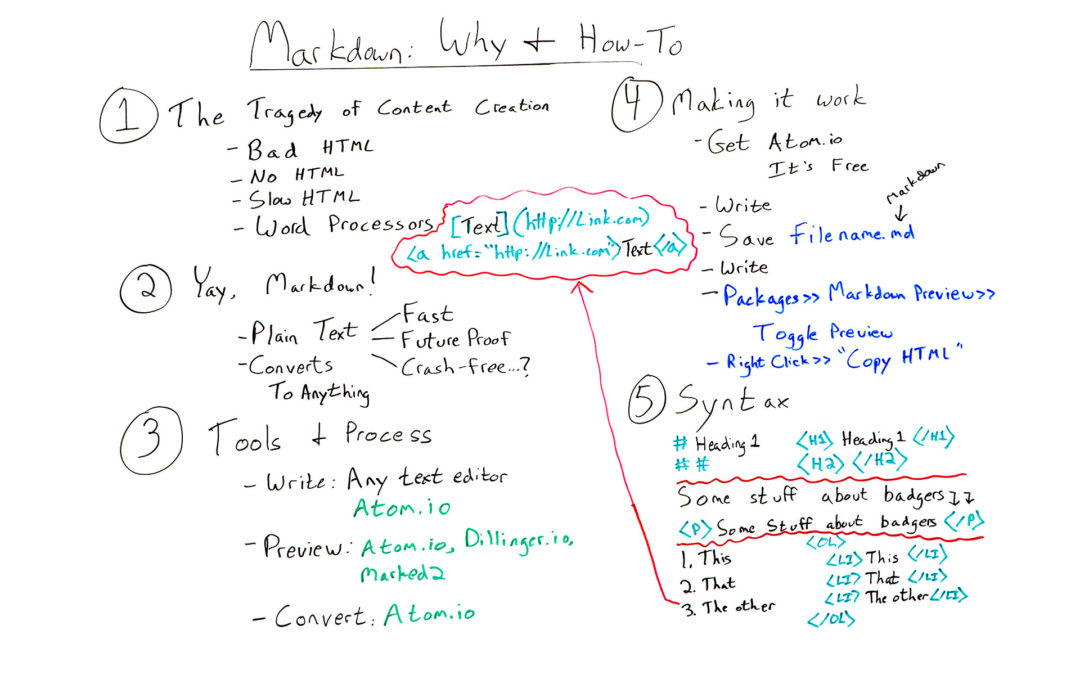 Markdown: Why + How-To
1 The Tragedy of Content Creation
- Bad HTML
- No HTML
- Slow HTML
- Word Processors
[Text](http://Link.com)
<a href="http://Link.com">Text</a>
2 Yay, Markdown!
- Plain Text
Fast
Future Proof
Crash-free...?
- Converts
To Anything
3 Tools + Process
- Write: Any text editor
Atom.io
- Preview: Atom.io, Dillinger.io,
Marked2
- Convert: Atom.io
4 Making it work
- Get Atom.io
It's Free
- Write
Markdown
- Save Filename.md
- Write
- Packages>> Markdown Preview>>
Toggle Preview
- Right Click>> "Copy HTML"
5 Syntax
# Heading 1 <H1> Heading 1 </H1>
## <H2> </H2>
Some stuff about badgers↓↓
<P> Some Stuff about badgers </P>
<OL>
1. This <LI> This </LI>
2. That <LI> That </LI>
3. The other <LI> The other </LI>
</OL>